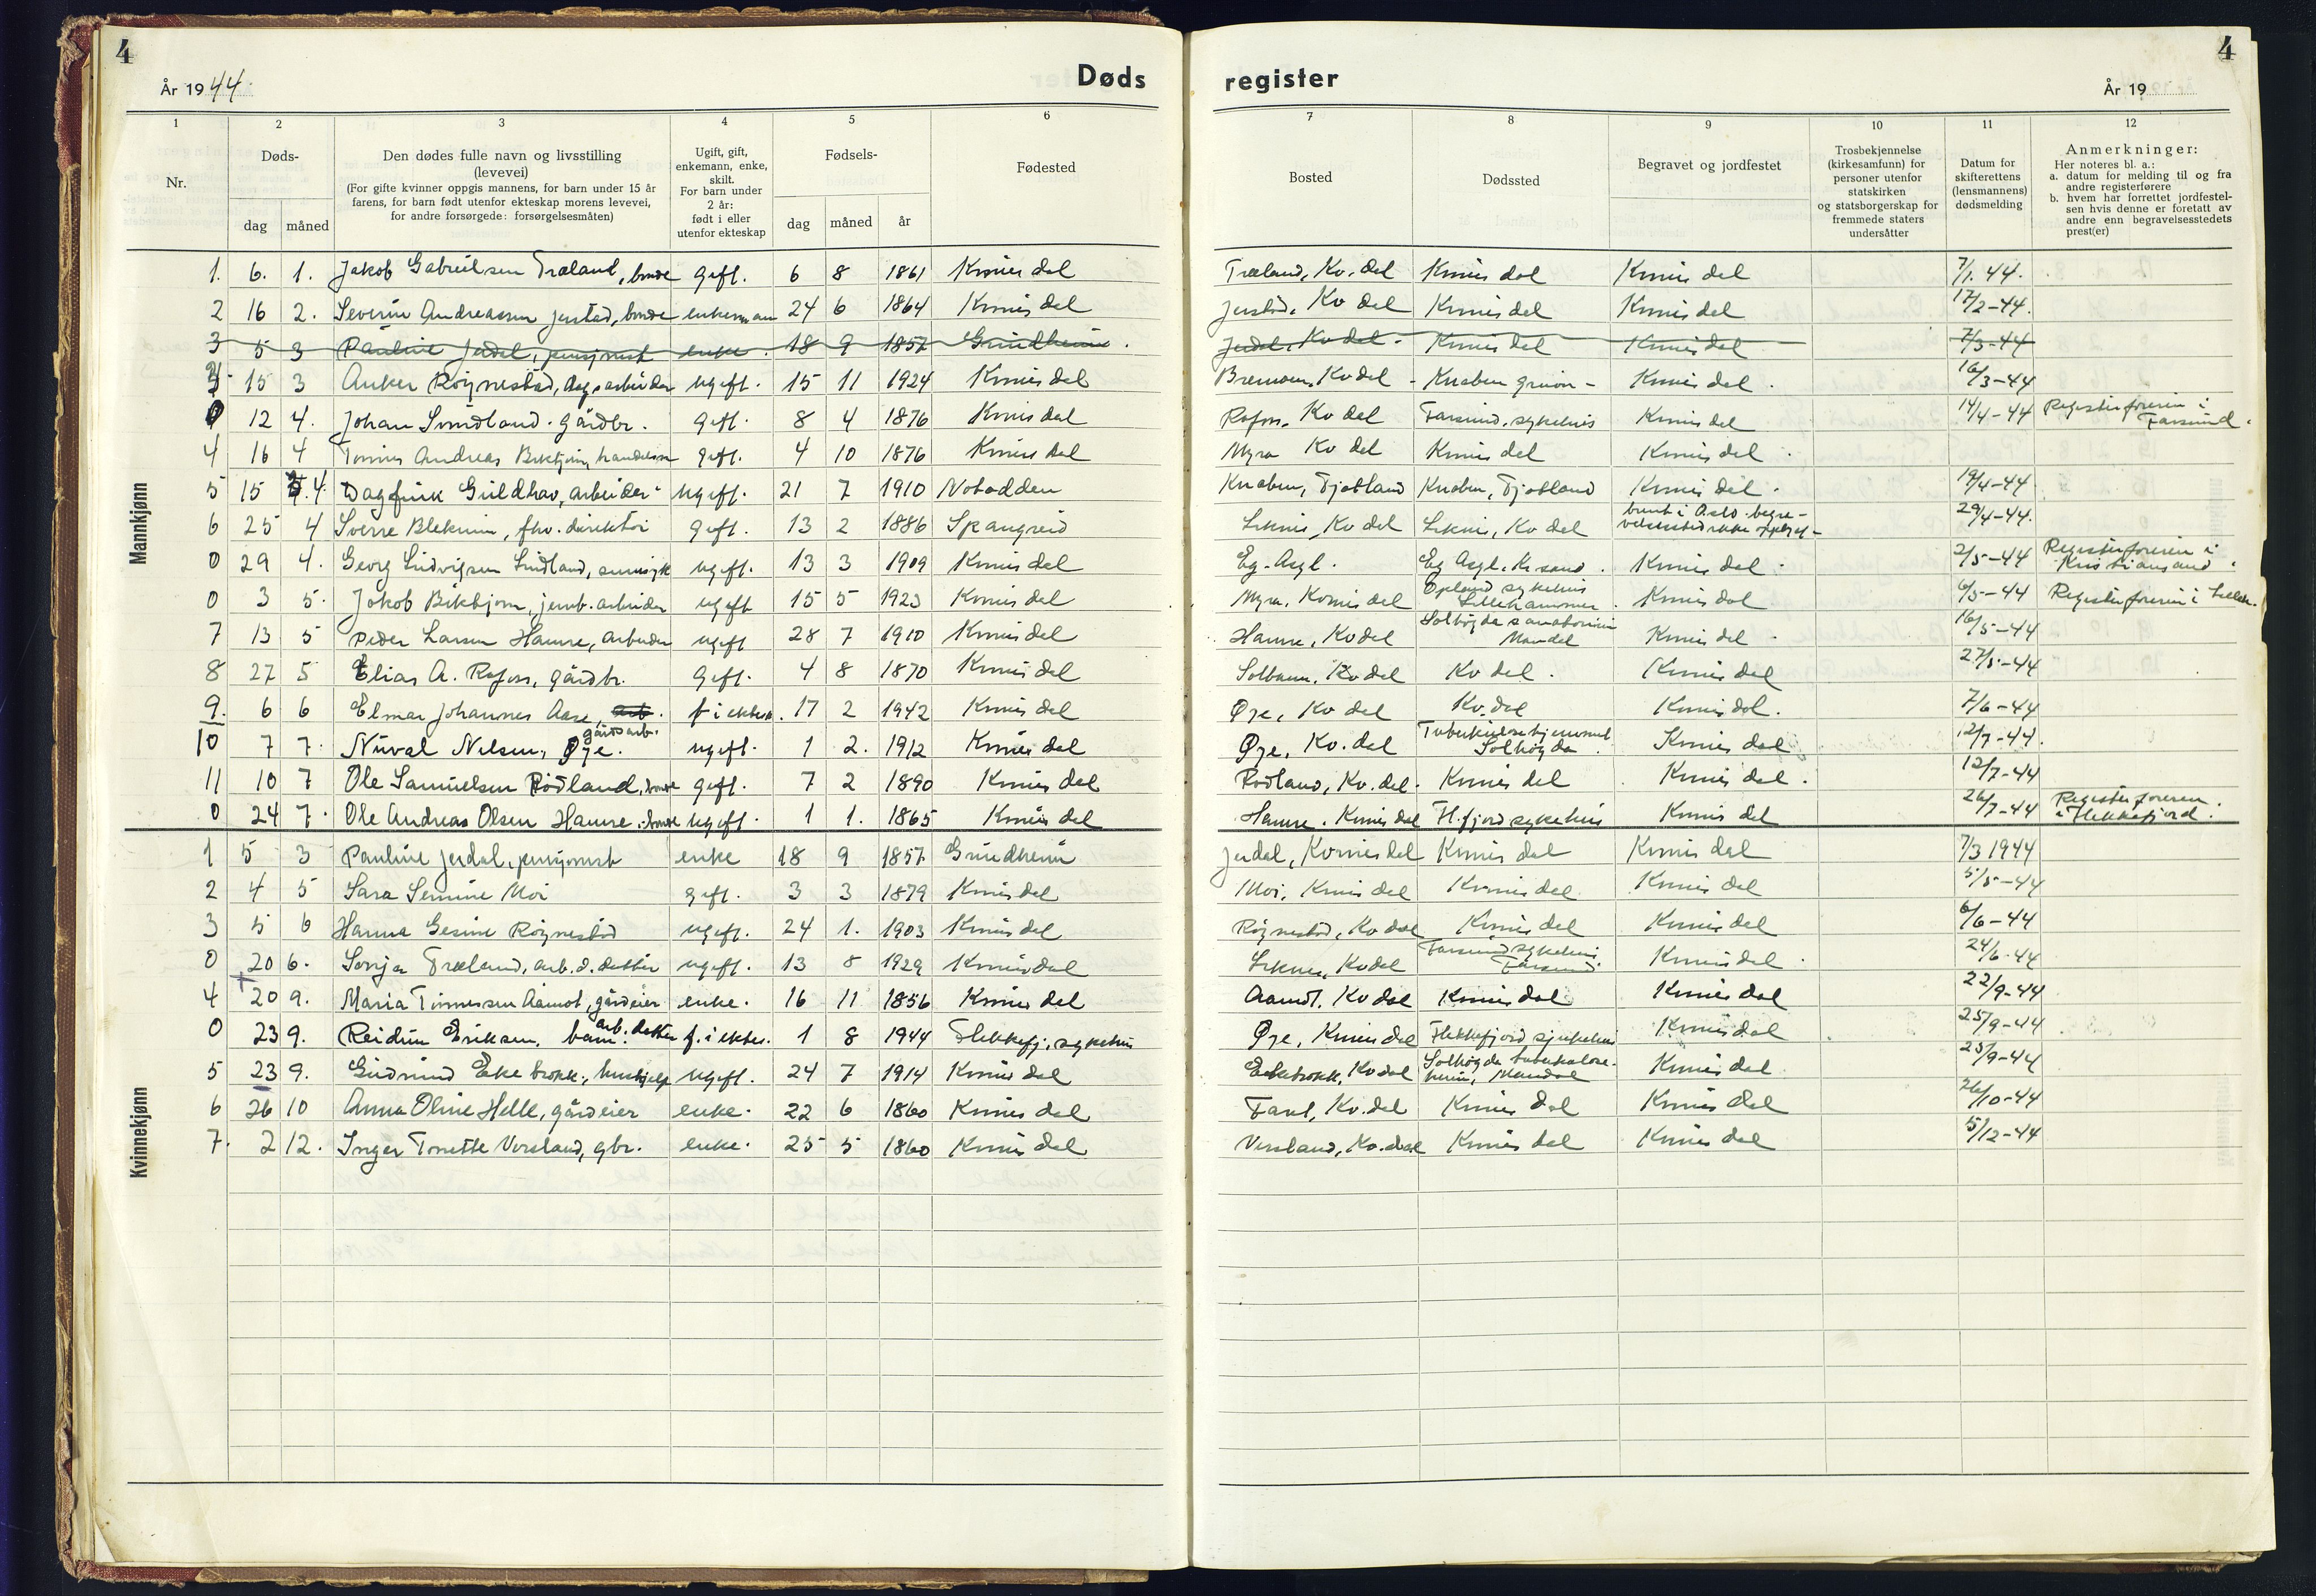 4
År 1944.
Døds
register
År 19
4
1 2 3 4 5 6 7 8 9 10 11 12
Nr.
Døds-
dag måned
Den dødes fulle navn og livsstilling
(levevei)
(For gifte kvinner oppgis mannens, for barn under 15 år
farens, for barn født utenfor ekteskap morens levevei,
for andre forsørgede: forsørgelsesmåten)
Ugift, gift,
enkemann, enke,
skilt.
For barn under
2 år:
født i eller
utenfor ekteskap
Fødsels-
dag måned år
Fødested
Bosted
Dødssted
Begravet og jordfestet
Trosbekjennelse
(kirkesamfunn) for
personer utenfor
statskirken
og statsborgerskap for
fremmede staters
undersåtter
Datum for
skifterettens
(lensmannens)
dødsmelding
Anmerkninger:
Her noteres bl. a.:
a. datum for melding til og fra
andre registerførere
b. hvem har forrettet jordfestel-
sen hvis denne er foretatt av
andre enn begravelsesstedets
prest(er)
Mannkjønn
1. 6. 1. Jakob Gabrielsen Træland, bonde gift. 6 8 1861 Kvinesdal Træland, Kv. dal Kvinesdal Kvinesdal 7/1. 44.
2 16 2. Severin Andreassen Jerstad, bonde enkemann 24 6 1864 Kvinesdal Jerstad, Kv dal Kvinesdal Kvinesdal 17/2-44.
3 5 3 Pauline Jerdal, pensjonist enke. 18 9 1857 Grindheim. Jerdal, Kv dal. Kvinesdal Kvinesdal 7/3-44
3 15 3 Anker Röynestad, dagsarbeider ugift. 15 11 1924 Kvinesdal Bremoen, Kv dal - Knaben gruver - Kvinesdal. 16/3-44
0 12 4. Johan Svindland. gårdbr. gift. 8 4 1876 Kvinesdal Rafoss, Kv dal Farsund, sykehus Kvinesdal 14/4-44 Registerføreren i
Farsund.
4 16 4 Tønnes Andreas Birkeland, handelsm gift. 4 10 1876 Kvinesdal Myra Kv dal Kvinesdal Kvinesdal. 
5 15 4. Dagfinn Guldhav, arbeider ugift. 21 7 1910 Notodden Knaben, Fjotland Knaben, Fjotland Kvinesdal. 19/4-44
6 25 4 Sverre Blekum, fhv. direktør gift. 13 2 1886 Spangreid Liknes, Kv dal Liknes, Kv dal brent i Oslo. begra-
velsessted ikke oppgit - 29/4-44.
0 29 4. Georg Ludvigsen Lindland, sinnsyk ugift. 13 3 1909 Kvinesdal Eg. Asyl. Eg Asyl. Kr.sand. Kvinesdal. 2/5-44 Registerføreren i
Kristiansand.
0 3 5. Jakob Birkbjørn, jernb. arbeider ugift 15 5 1923 Kvinesdal Myra, Kvinesdal Opland sykehus
Lillehammer. Kvinesdal 6/5-44 Registerføreren i Lilleh.
7 13 5 Peder Larsen Hamre, arbeider ugift 28 7 1910 Kvinesdal Hamre, Kv dal Solhögda sanatorium
Mandal Kvinesdal. 16/5-44
8 27 5 Elias A. Rafoss, gårdbr. gift. 4 8 1870 Kvinesdal Solbakken, Kv dal Kv dal. Kvinesdal 27/5-44
9. 6 6 Elmar Johannes Aase, arb. f. i ektesk. 17 2 1942 Kvinesdal Øye, Kv dal Kv. dal Kvinesdal. 7/6-44
10 7 7. Nüval Nilsen, Øye. gårdsarb. ugift. 1 2. 1912 Kvinesdal Øye, Kv. dal Tuberkulosehjemmet
Solhögda. Kvinesdal 12/7-44.
11 10 7 Ole Samuelsen Rödland, bonde gift. 7 2 1890 Kvinesdal Rödland, Kv. dal. Kvinesdal Kvinesdal. 12/7-44
0 24 7. Ole Andreas Olsen Hamre, bonde ugift. 1 1. 1865 Kvinesdal Hamre. Kvinesdal Fl.fjord sykehus Kvinesdal 26/7-44 Registerføreren.
i Flekkefjord.
Kvinnekjønn
1 5 3 Pauline Jerdal, pensjonist enke 18 9 1857 Grindheim Jerdal, Kvinesdal Kvinesdal Kvinesdal 7/3 1944
2 4 5 Sara Semine Moi gift. 3 3 1879 Kvinesdal Moi, Kvinesdal Kvinesdal Kvinesdal 5/5-44
3 5 6 Hanna Gesine Röynestad ugift. 24 1. 1903 Kvinesdal Röynestad, Kv dal Kvinesdal Kvinesdal 6/6-44
0 20 6. Sonja Træland, arb. d. datter ugift. 13 8 1929 Kvinesdal Liknes, Kv dal Farsund sykehus
Farsund. Kvinesdal. 24/6-44
4 20 9. Maria Tönnesen Aamot, gårdeier enke. 16 11 1856 Kvinesdal Aamot, Kv dal Kvinesdal Kvinesdal 22/9-44
0 23 9. Reidun Eriksen, barn. arb. datter f. i ektes. 1 8 1944 Flekkefj. sykehus Øye, Kvinesdal Flekkefjord sjukehus Kvinesdal 25/9-44
5 23 9. Gudrund Ekebrokk, hushjelp ugift. 24 7 1914 Kvinesdal Eikebrokk, Kv dal Solhögda tuberkulose-
heim, Mandal Kvinesdal 25/9-44
6 26 10 Anna Oline Helle, gårdeier enke. 22 6 1860 Kvinesdal Kv. dal Kvinesdal Kvinesdal 26/10-44
7. 2 12. Inger Tonette Versland, gbr. enke. 25 5 1860 Kvinesdal Versland, Kv. dal Kvinesdal Kvinesdal 5/12-44